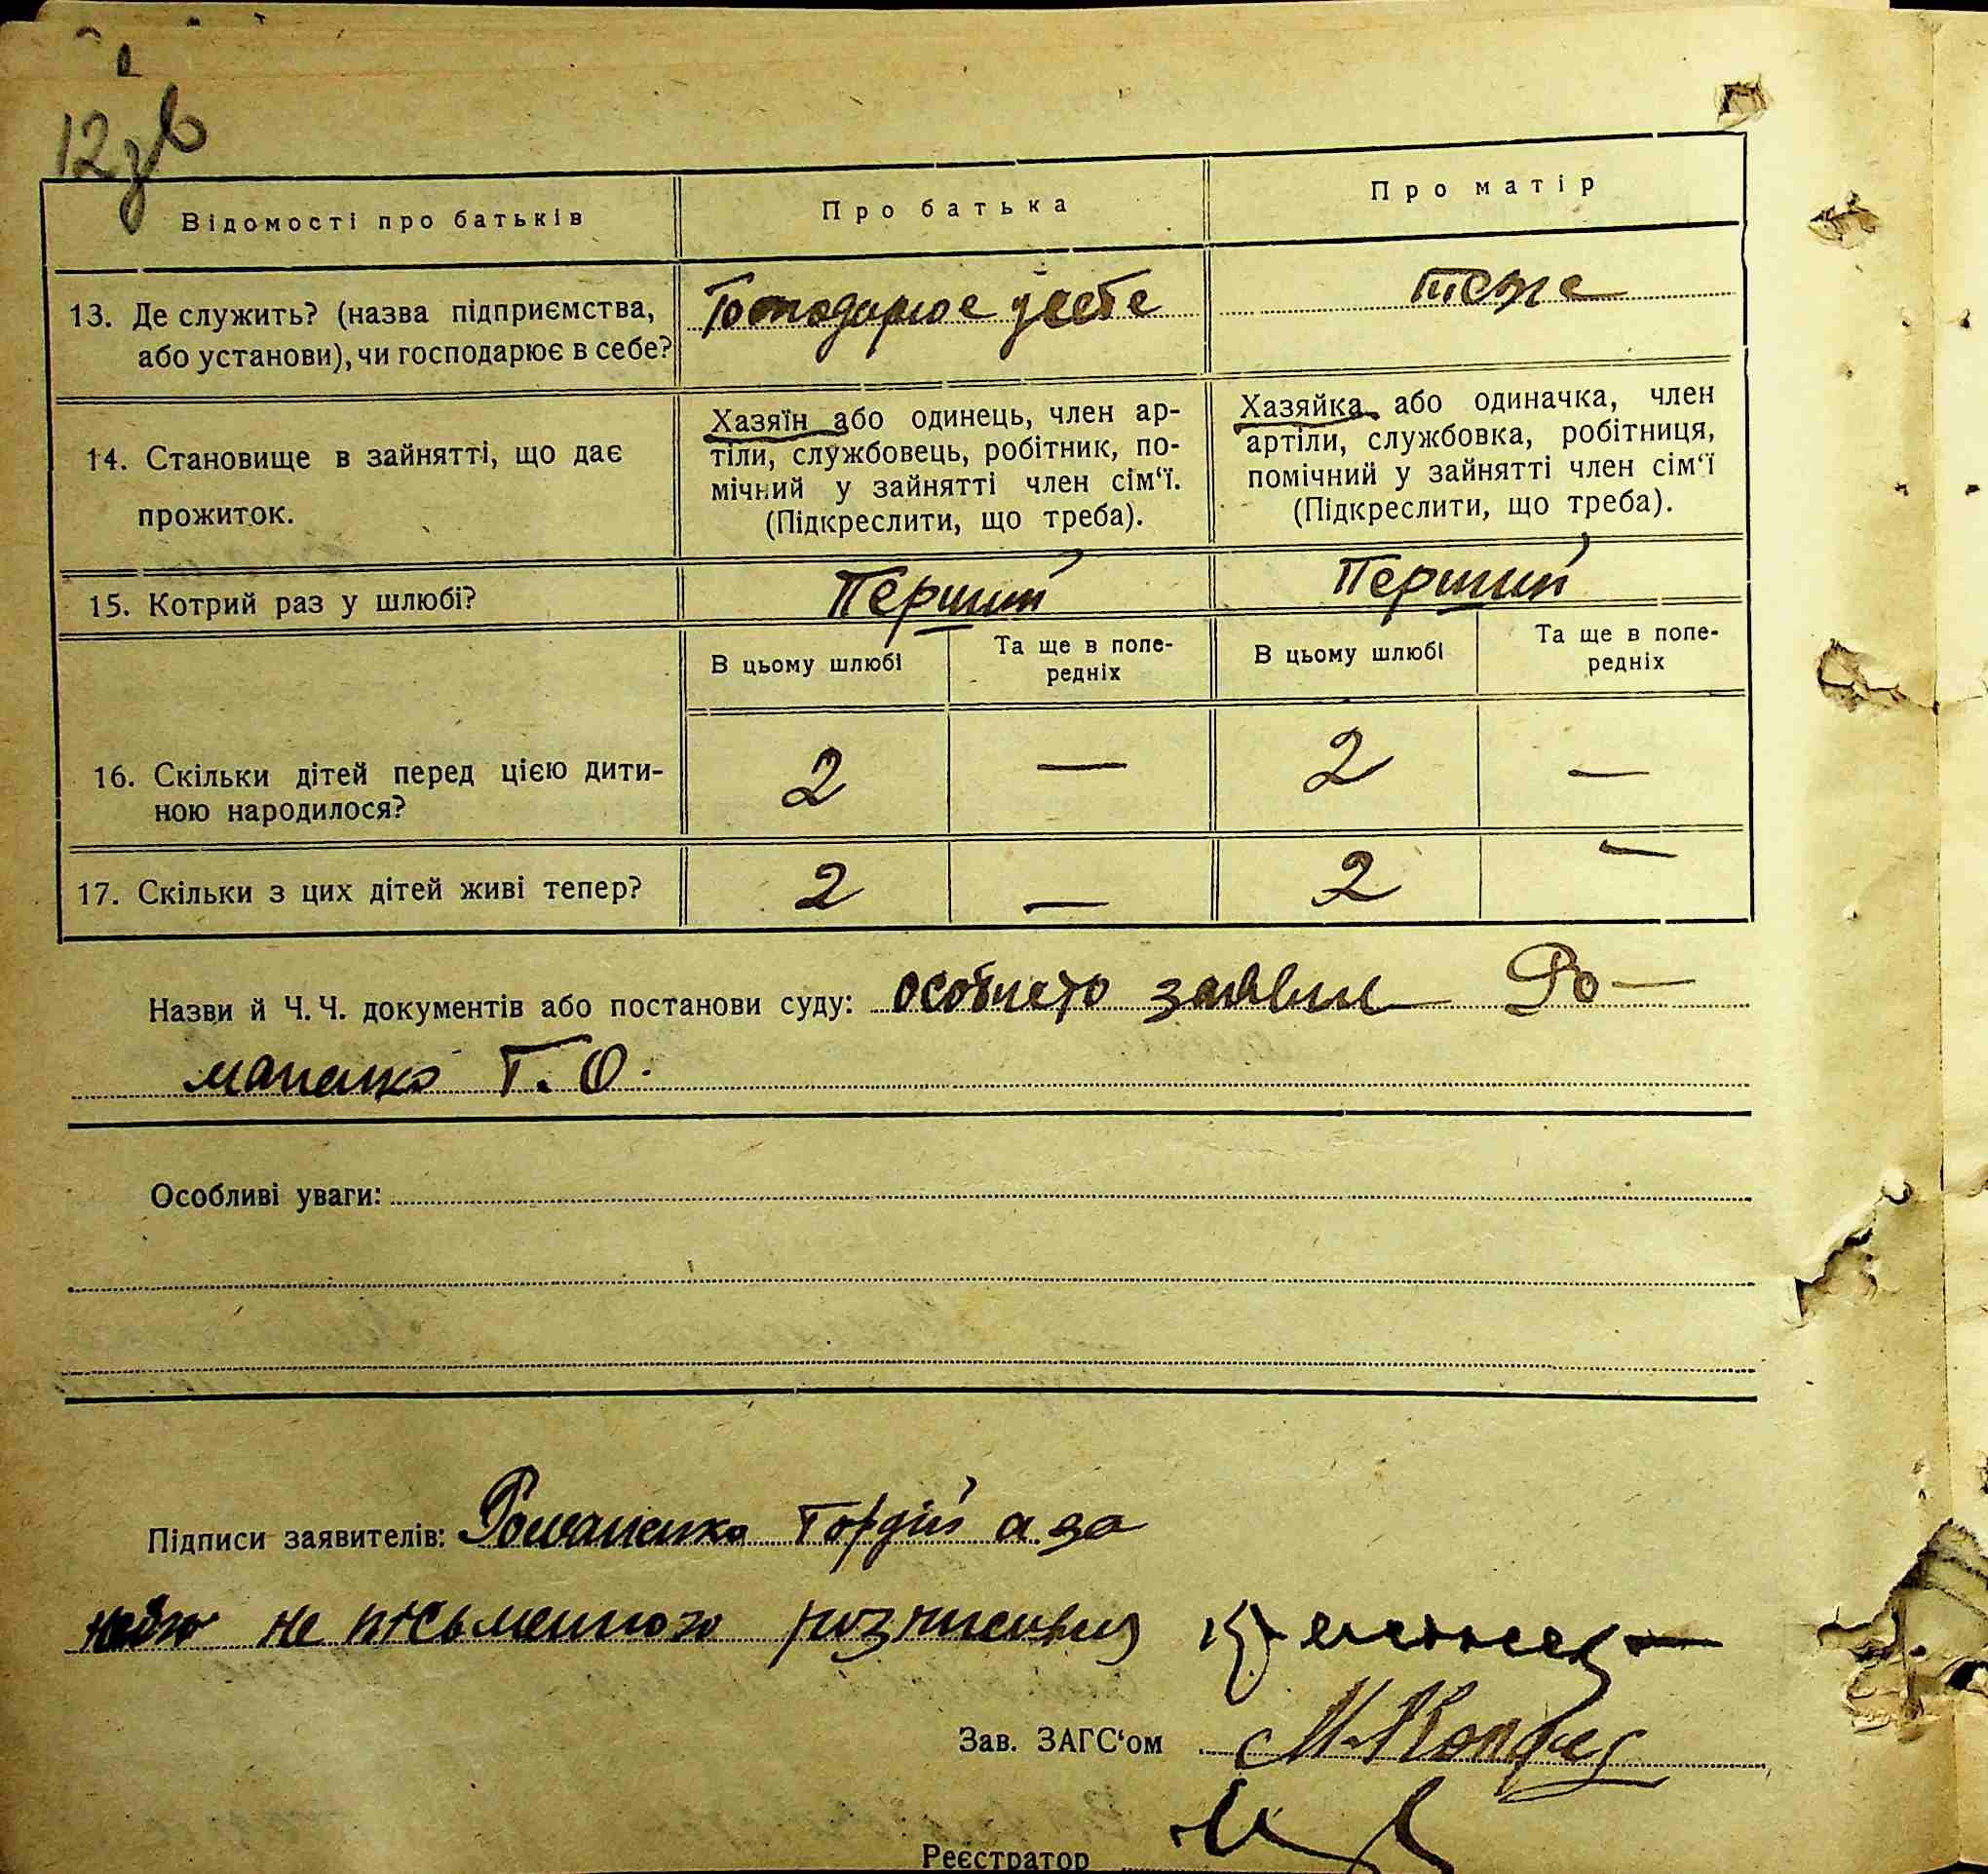 12зв
Відомості про батьків
Про батька
Про матір
13. Де служить? (назва підприємства,
або установи), чи господарює в себе?
Господарює у себе
теже
14. Становище в зайнятті, що дає
прожиток.
Хазяїн або одинець, член ар-
тіли, службовець, робітник, по-
мічний у зайнятті член сім‘ї.
(Підкреслити, що треба).
Хазяйка або одиначка, член
артіли, службовка, робітниця,
помічний у зайнятті член сім‘ї
(Підкреслити, що треба).
15. Котрий раз у шлюбі?
Перший
Перший
В цьому шлюбі
Та ще в попе-
редніх
В цьому шлюбі
Та ще в попе-
редніх
16. Скільки дітей перед цією дити-
ною народилося?
2 — 2 —
17. Скільки з цих дітей живі тепер?
2 — 2 —
Назви й Ч. Ч. документів або постанови суду: особисто заявил Ро-
маненко Г. О.
Особливі уваги:
Підписи заявителів: Романенко Гордій а за
нього не письменного розписався
Зав. ЗАГС‘ом
Реєстратор